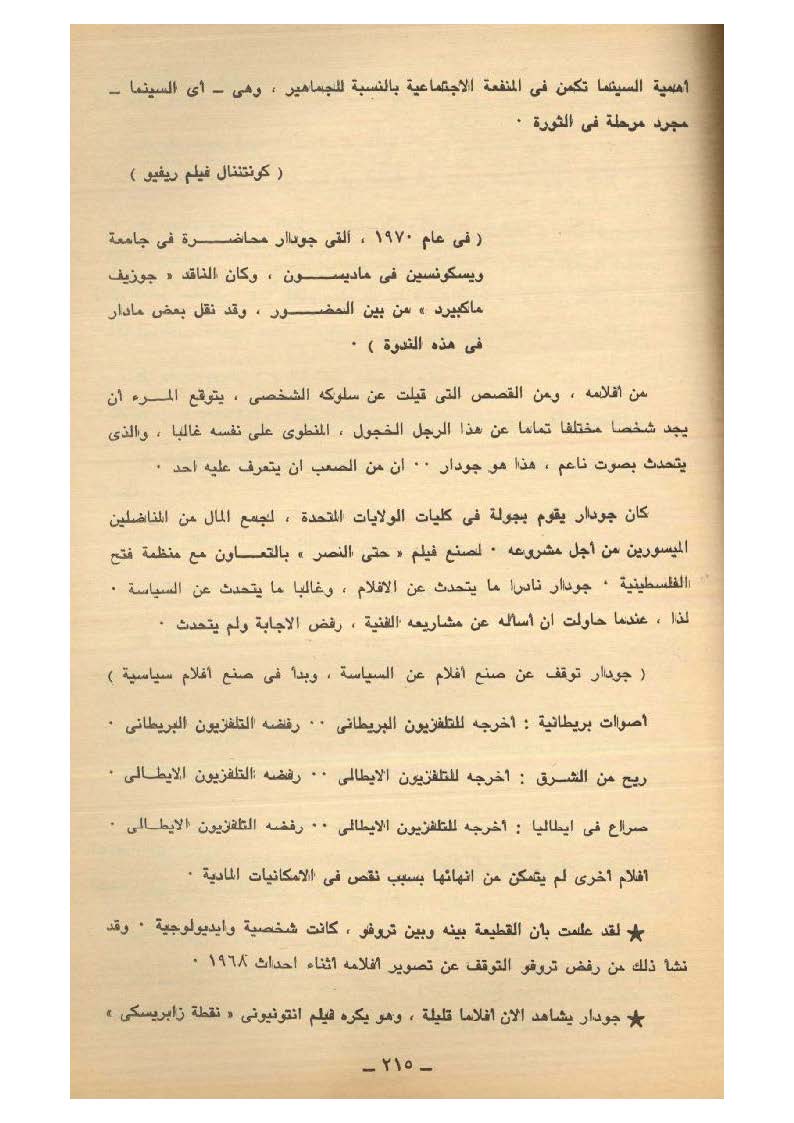 أهمية السينما تكمن فى المنفعة الاجتماعية بالنسبة للجماهير ، وهى ـ أى السينما ـ
مجرد مرحلة فى الثورة ٠
( كونتننال فيلم ريفيو )
( فى عام ١٩٧٠ ، ألقى جودار محاضـــــرة فى جامعة
ويسكونسين فى ماديســــون ، وكان الناقد « جوزيف
ماكبيرد » من بين الحضـــــور ، وقد نقل بعض مادار
فى هذه الندوة ) ٠
من أفلامه ، ومن القصص التى قيلت عن سلوكه الشخصى ، يتوقع المـــرء أن
يجد شخصا مختلفا تماما عن هذا الرجل الخجول ، المنطوى على نفسه غالبا ، والذى
يتحدث بصوت ناعم ، هذا هو جودار ٠٠ ان من الصعب ان يتعرف عليه احد ٠
كان جودار يقوم بجولة فى كليات الولايات المتحدة ، لجمع المال من المناضلين
الميسورين من أجل مشروعه ٠ لصنع فيلم « حتى النصر » بالتعـــاون مع منظمة فتح
الفلسطينية ٠ جودار نادرا ما يتحدث عن الافلام ، وغالبا ما يتحدث عن السياسة ٠
لذا ، عندما حاولت ان أسأله عن مشاريعه الفنية ، رفض الاجابة ولم يتحدث ٠
( جودار توقف عن صنع أفلام عن السياسة ، وبدأ فى صنع افلام سياسية )
أصوات بريطانية : أخرجه للتلفزيون البريطانى ٠٠ رفضه التلفزيون البريطانى ٠
ريح من الشـرق : أخرجه للتلفزيون الايطالى ٠٠ رفضه التلفزيون الايطـالى ٠
صراع فى ايطاليا : أخرجه للتلفزيون الايطالى ٠٠ رفضه التلفزيون الايطـالى ٠
أفلام أخرى لم يتمكن من انهائها بسبب نقص فى الامكانيات المادية ٠
★ لقد علمت بأن القطيعة بينه وبين تروفو ، كانت شخصية وايديولوجية ٠ وقد
نشأ ذلك من رفض تروفو التوقف عن تصوير أفلامه أثناء احداث ١٩٦٨ ٠
★ جودار يشاهد الان أفلاما قليلة ، وهو يكره فيلم انتونيونى « نقطة زابريسكى »
ـ ٢١٥ ـ